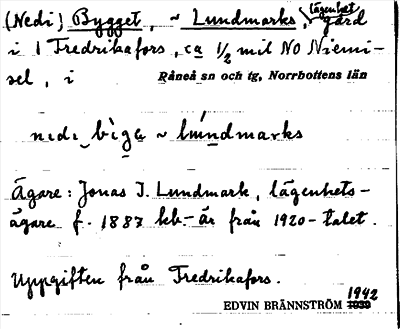 (Nedi) Bygget, ~ Lundmarks, lägenhet, gård
i 1 Fredrikafors, ca 1/2 mil NO Niemi-
sel, i Råneå sn och tg, Norrbottens län
nedi bìga ~ lúndmarks
Ägare: Jonas I. Lundmark, lägenhets-
ägare f. 1887 kb.-är från 1920-talet.
Uppgiften från Fredrikafors.
EDVIN BRÄNNSTRÖM 1942